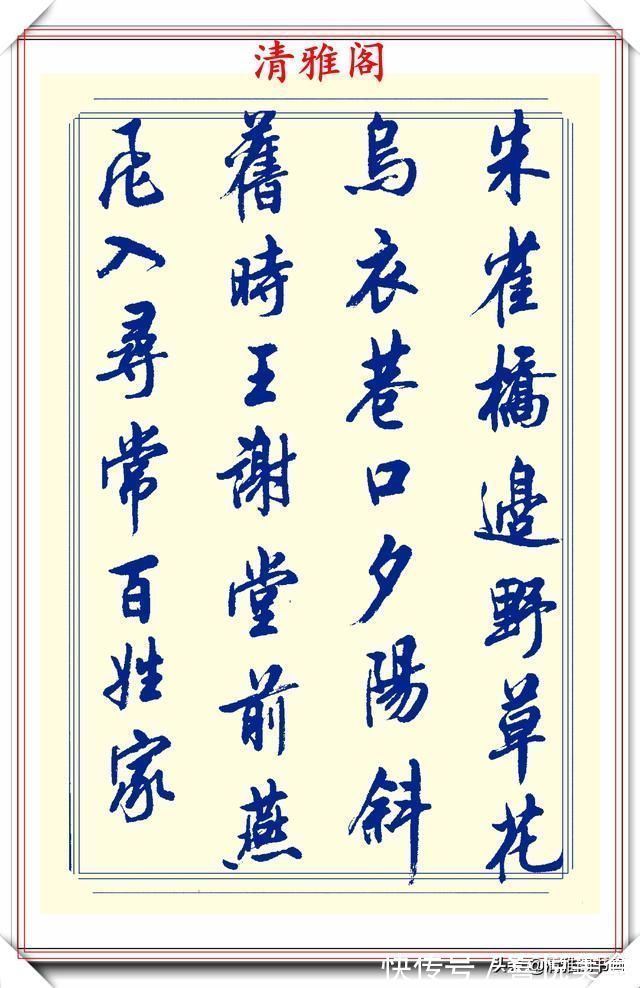 清雅阁
朱雀橋邊野草花
烏衣巷口夕陽斜
舊時王謝堂前燕
飛入尋常百姓家
快传号
头条